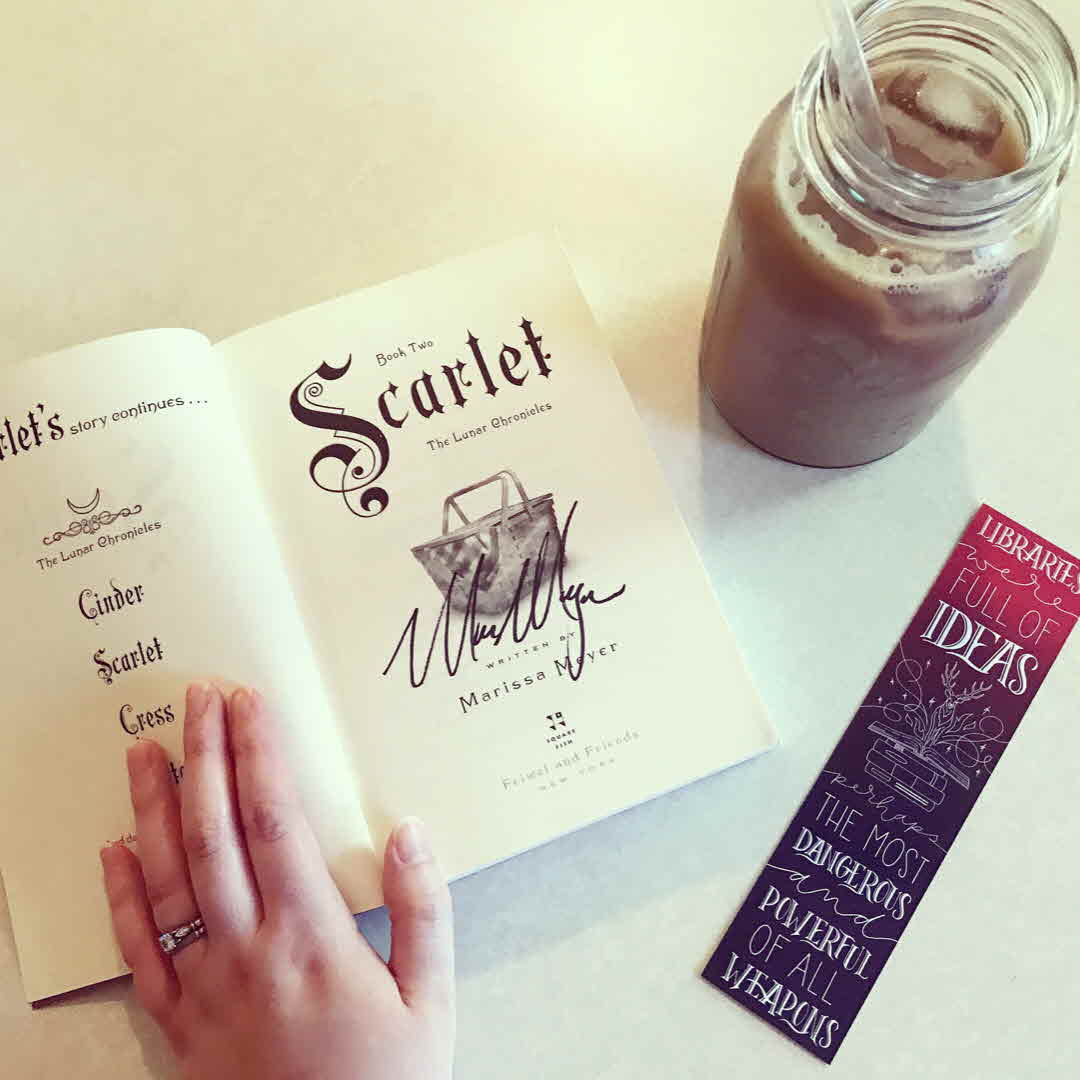 rlet's story continues . . .
The Lunar Chronicles
Cinder
Scarlet
Cress
Book Two
Scarlet
The Lunar Chronicles
WRITTEN BY
Marissa Meyer
SQUARE
FISH
Feiwel and Friends
NEW YORK
LIBRARIES
were
FULL OF
IDEAS
perhaps
THE MOST
DANGEROUS
and
POWERFUL
OF ALL
WEAPONS